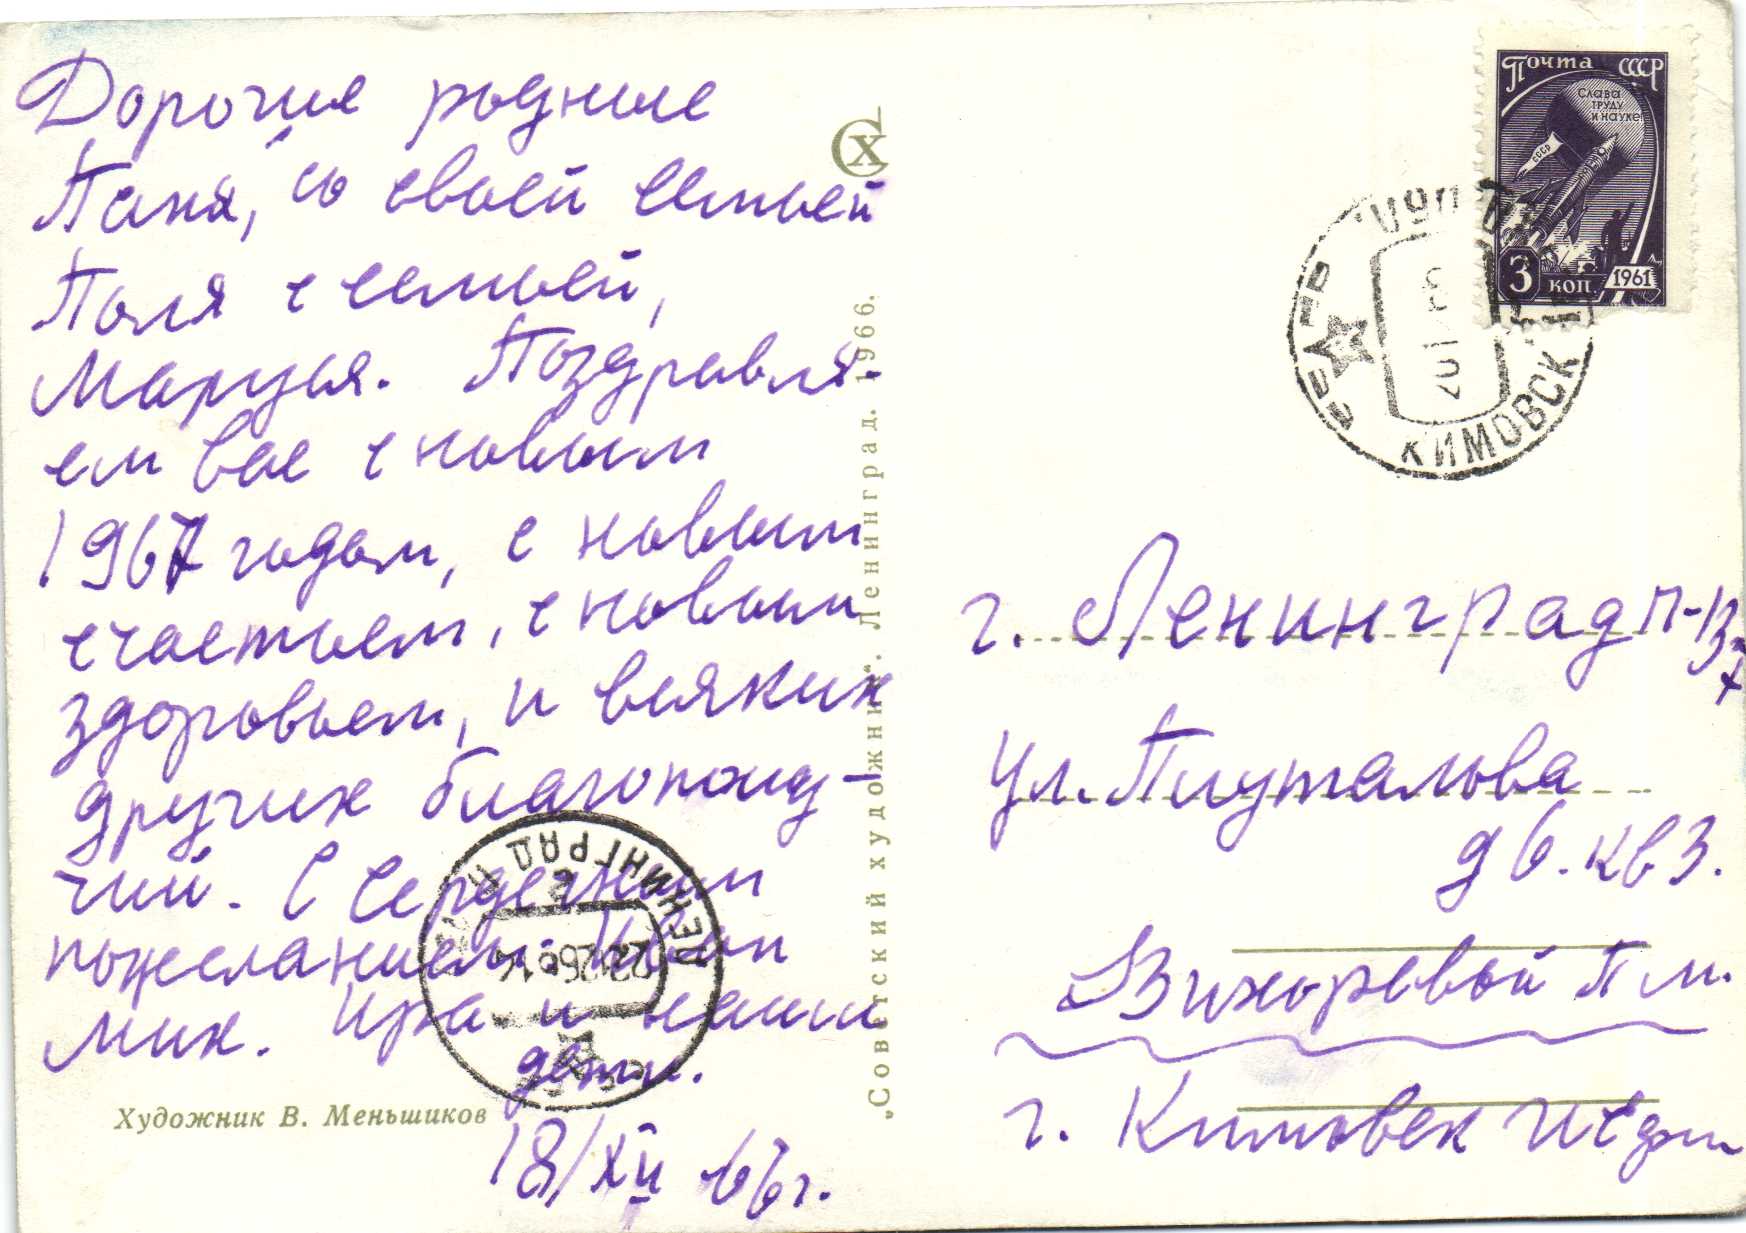 Дорогие родные
Паня, со своей семьей
Поля с семьей,
Маруся. Поздравля-
ем вас с новым
1967 годом, с новым
счастьем, с новым
здоровьем, и всяких
других благополу-
чий. С Сердечным
пожеланием.
Мих. Ира и наши
дети.
18/XII 66г.
Художник В. Меньшиков
„Советский художник“. Ленинград. 1966.
СХ
Почта СССР
Слава
труду
и науке!
СССР
3 коп. 1961
КИМОВСК
ЛЕНИНГРАД
г. Ленинград П-13
ул. Плуталова
д 6. кв 3.
Вихоревой П М.
г. Кимовск